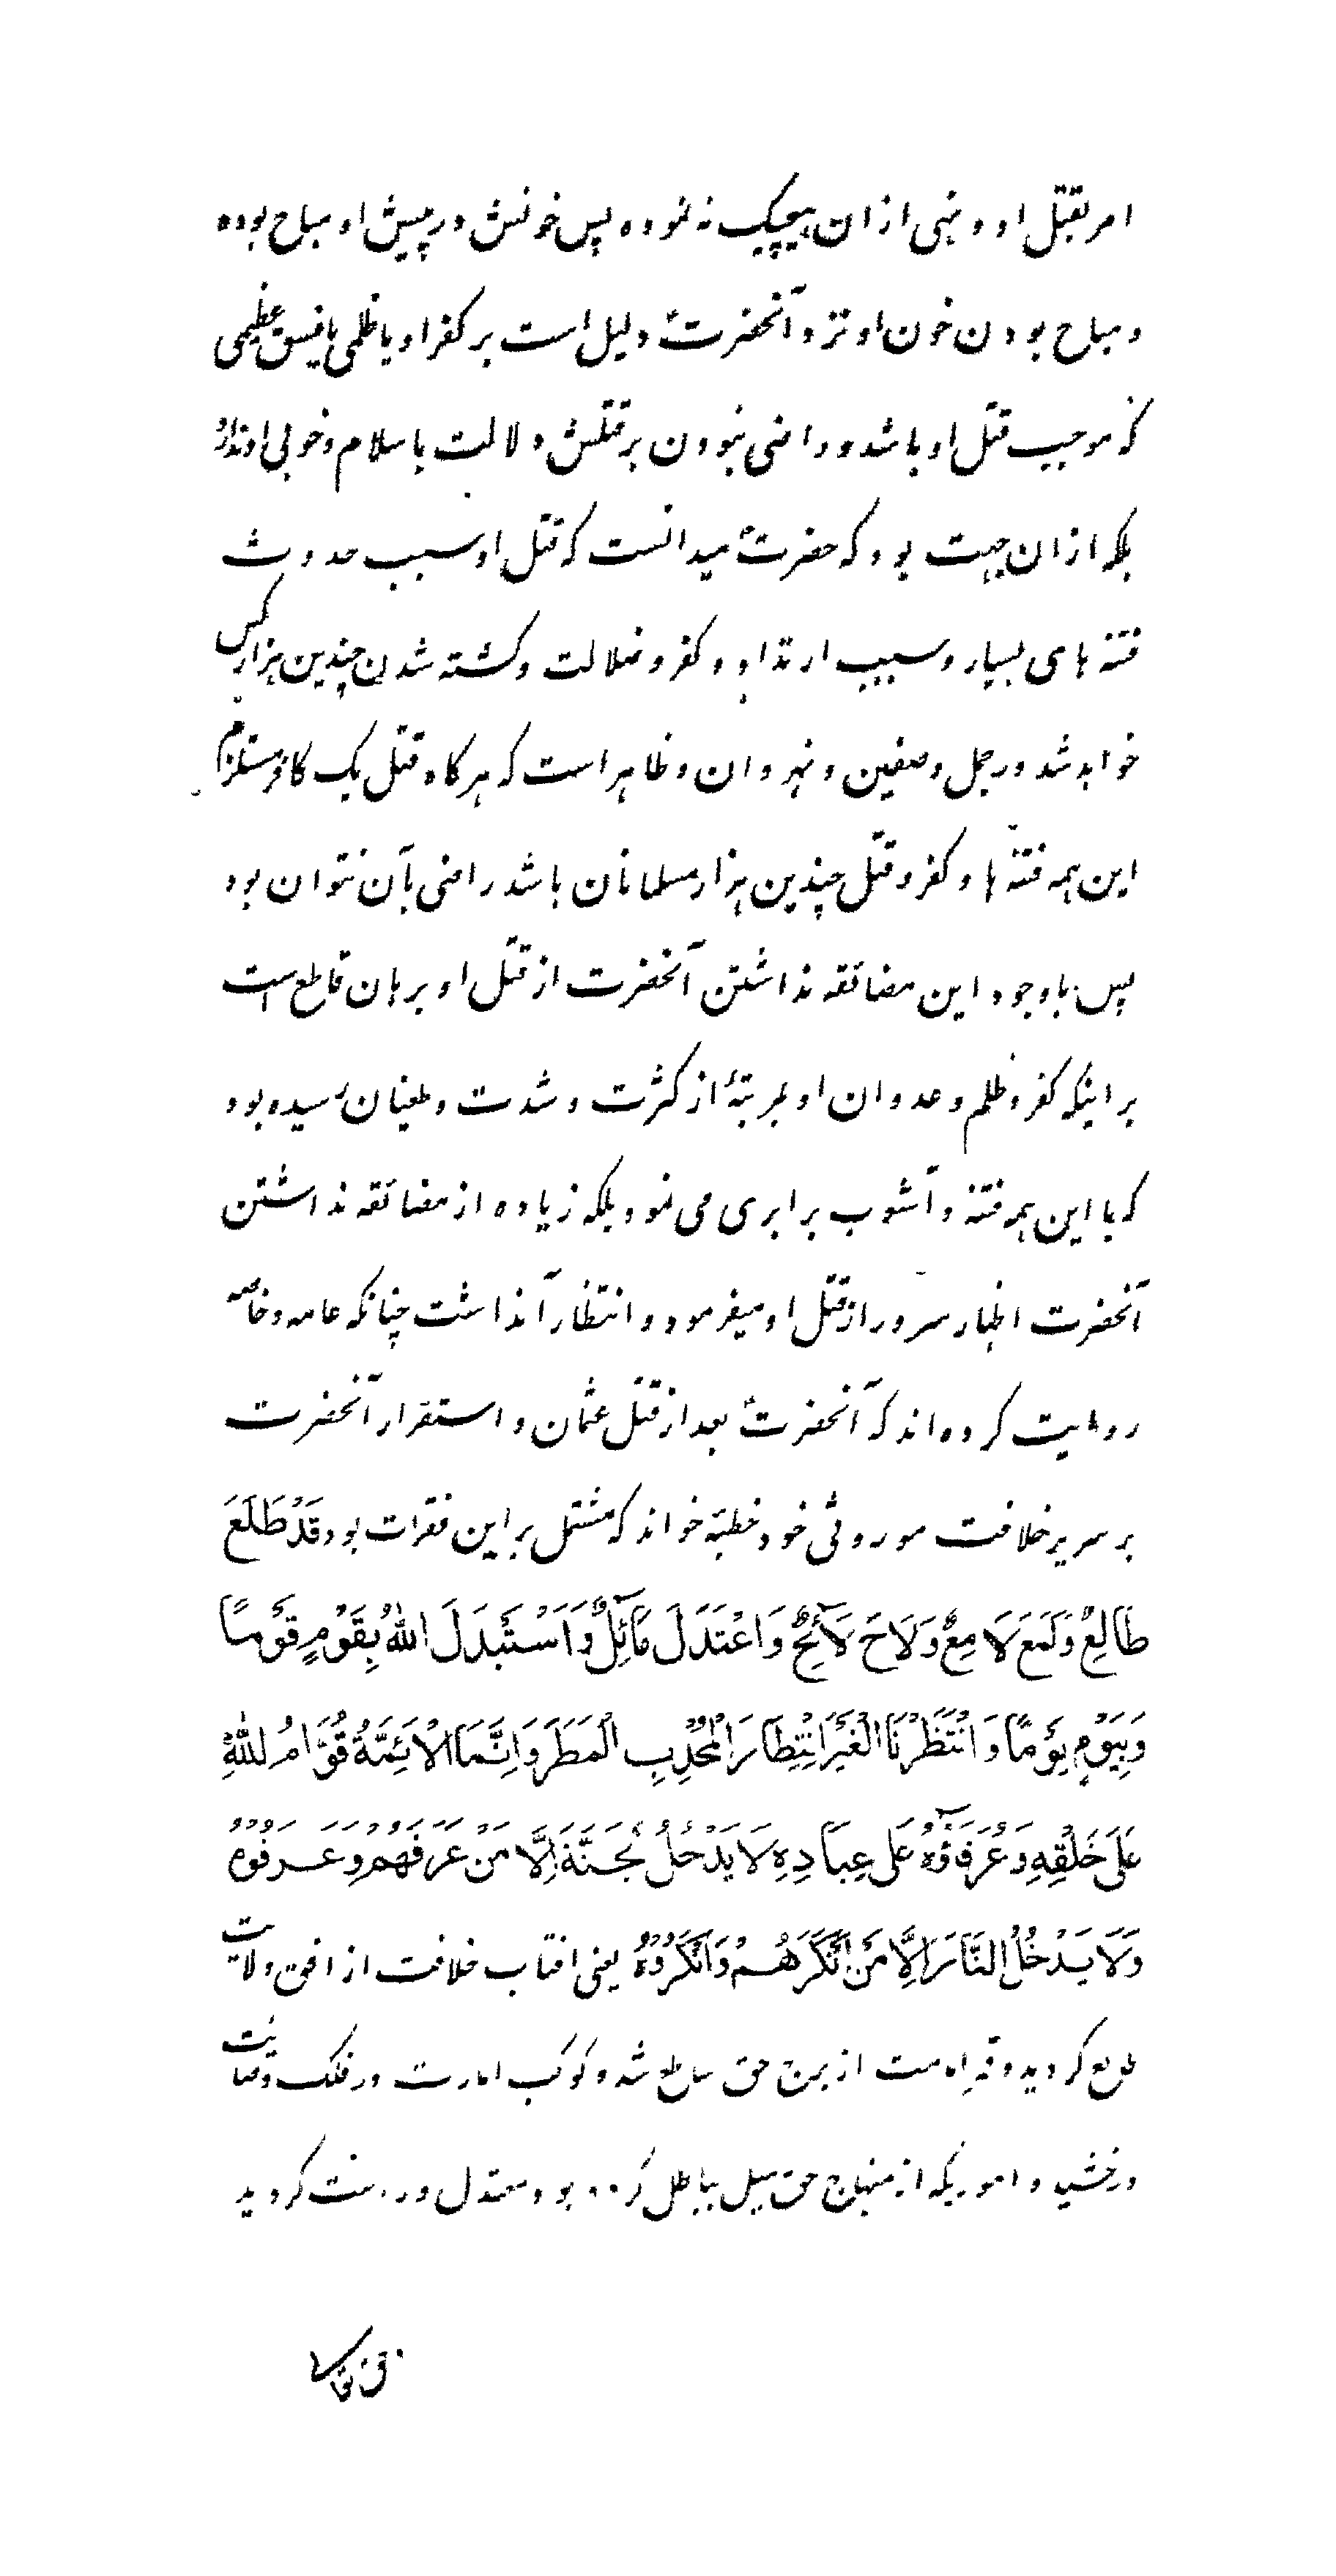 امر بقتل او و نهی ازان هیچیک نه نموده پس خونش در پیش او مباح بوده
و مباح بودن خون او نزد آنحضرتؐ دلیل است بر کفر او یا ظلمی یا فسق عظیمی
که موجب قتل او باشد و راضی نبودن بر قتلش دلالت باسلام و خوبی او ندارد
بلکه ازان جهت بود که حضرتؐ میدانست که قتل او سبب حدوث
فتنه های بسیار و سبب ارتداد و کفر و ضلالت و کشته شدن چندین هزار کس
خواهد شد در جمل و صفین و نهروان و ظاهر است که هرکاه قتل یک کافر مستلزم
این همه فتنها و کفر و قتل چندین هزار مسلمانان باشد راضی بآن نتوان بود
پس باوجود این مضائقه نداشتن آنحضرت از قتل او برهان قاطع است
بر اینکه کفر و ظلم و عدوان او بمرتبۀ از کثرت و شدت و طغیان رسیده بود
که با این همه فتنه و آشوب برابری می نمود بلکه زیاده از مضائقه نداشتن
آنحضرت اظهار سرور از قتل او میفرمود و انتظار آنداشت چنانکه عامه و خاصه
روایت کرده اند که آنحضرتؑ بعد از قتل عثمان و استقرار آنحضرت
بر سریر خلافت موروثی خود خطبۀ خواند که مشتمل بر این فقرات بود قَدْ طَلَعَ
طَالِعٌ وَلَمَعَ لَامِعٌ وَلَاحَ لَآئِحٌ وَاعْتَدَلَ مَآئِلٌ وَاَسْتَبْدَلَ اللهُ بِقَوْمٍ قَوْمًا
وَبِيَوْمٍ يَوْمًا وَانْتَظَرْنَا الْغَيْرَ اِنْتِظَارَ الْمُجْدِبِ الْمَطَرَ وَاِنَّمَا الْاَئِمَّةُ قُوَّامُ لِلّٰهِ
عَلَى خَلْقِهِ وَعُرَفَآؤُهُ عَلَى عِبَادِهِ لَا يَدْخُلُ لْجَنَّةَ اِلَّا مَنْ عَرَفَهُمْ وَعَرَفُوْهُ
وَلَا يَدْخُلُ النَّارَ اِلَّا مَنْ اَنْكَرَهُمْ وَاَنْكَرُوْهُ یعنی افتاب خلافت از افق ولایت
طالع کردید و قمر امامت از برج حق ساطع شد و کوکب امارت در فلک وصایت
درخشید و اموریکه از منهاج حق میل بباطل کرده بود معتدل و راست کردید